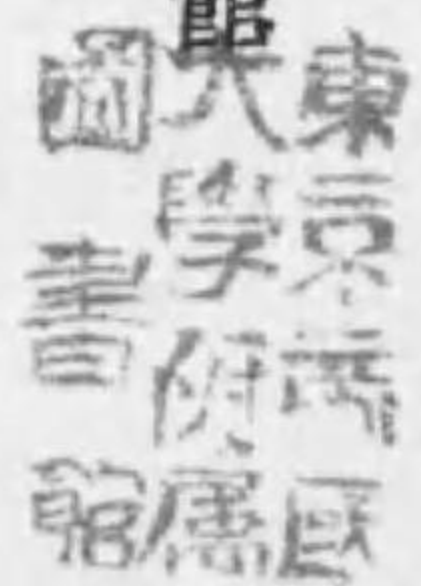 東京帝國
大學附屬
圖書館